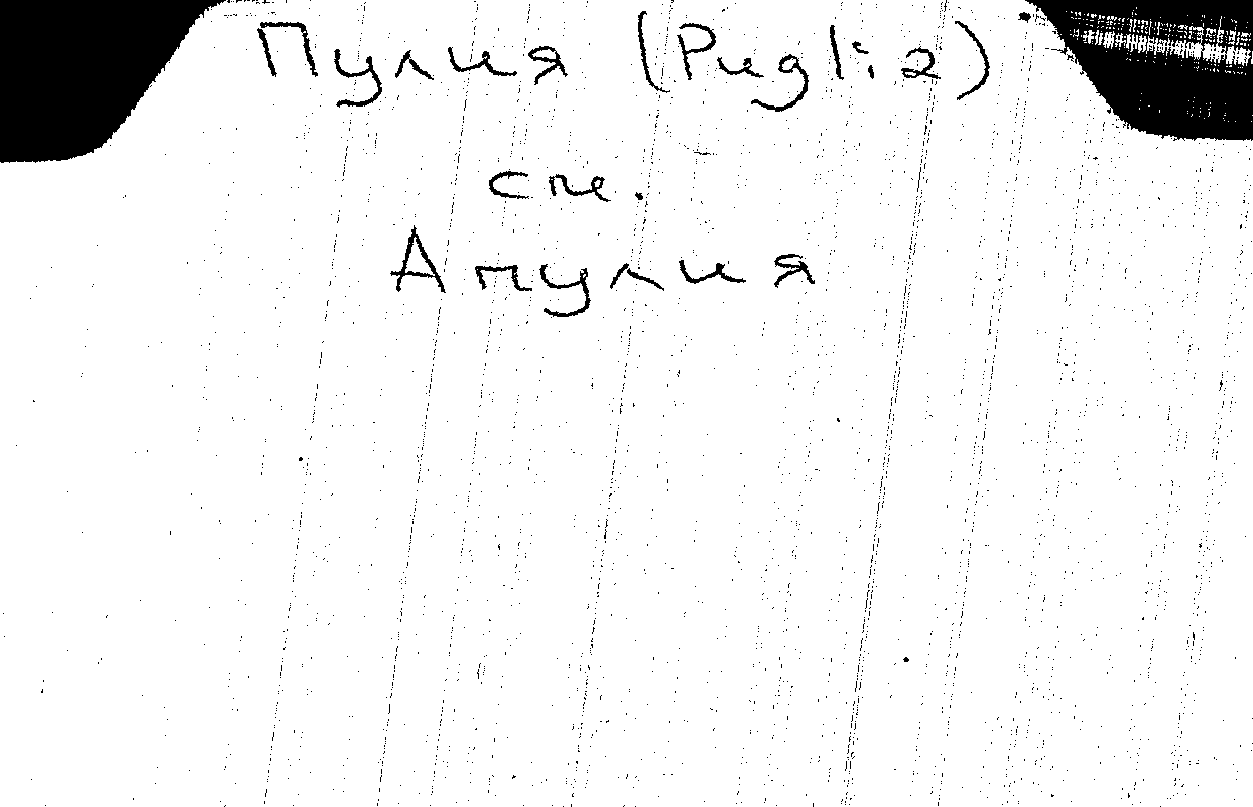 Пулия (Puglia)
см.
Апулия